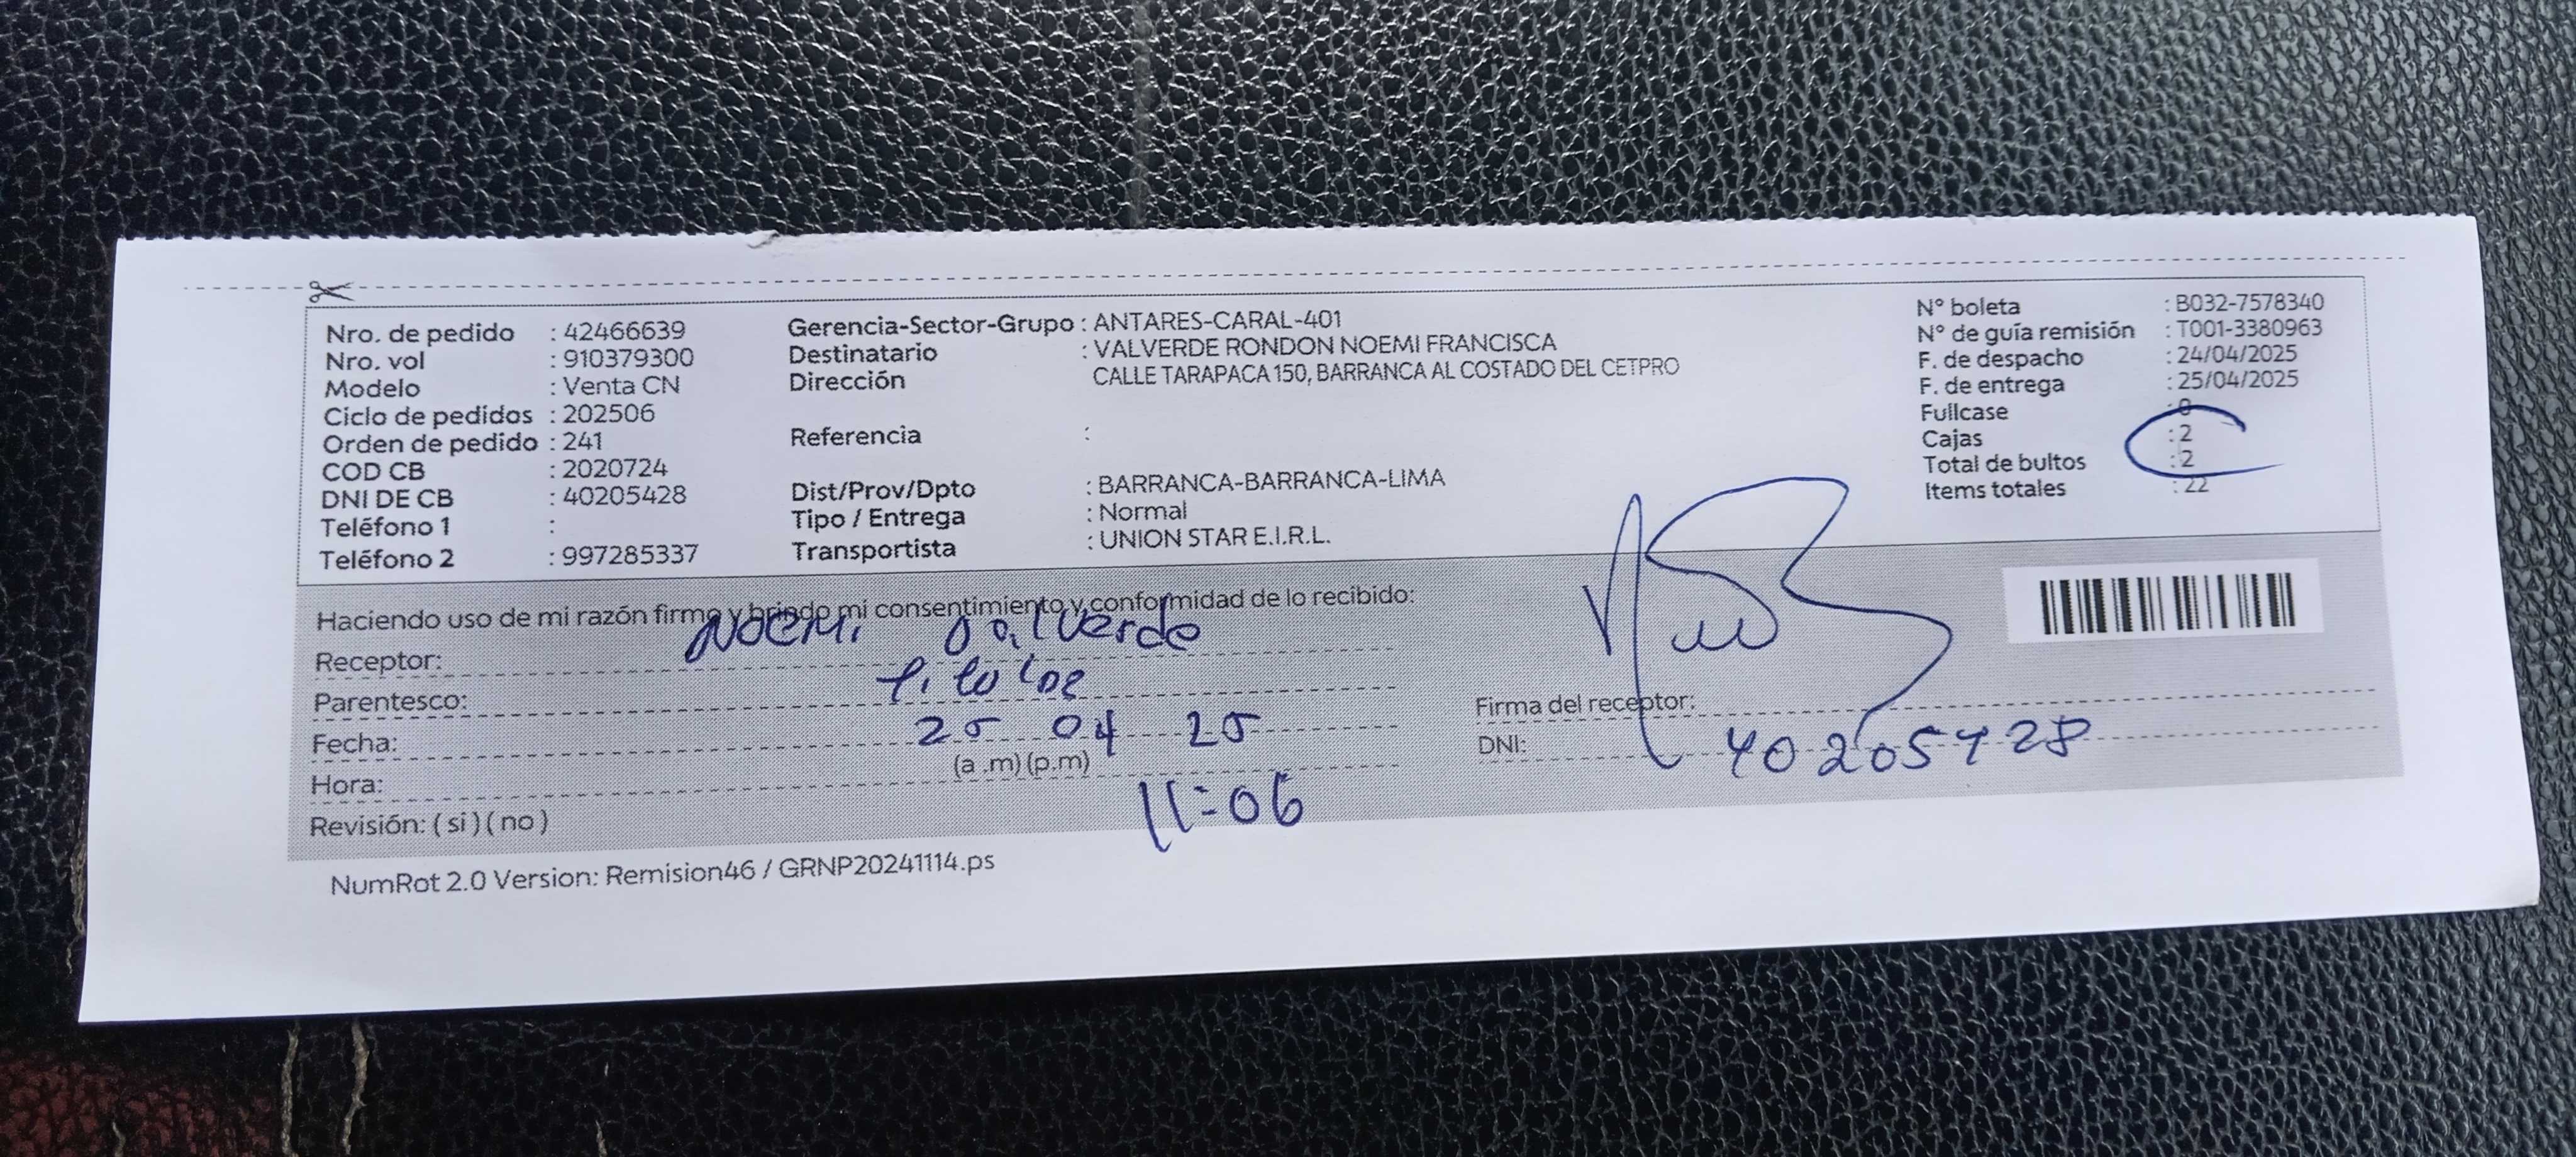 Nro. de pedido : 42466639
Nro. vol : 910379300
Modelo : Venta CN
Ciclo de pedidos : 202506
Orden de pedido : 241
COD CB : 2020724
DNI DE CB : 40205428
Teléfono 1 :
Teléfono 2 : 997285337
Gerencia-Sector-Grupo : ANTARES-CARAL-401
Destinatario : VALVERDE RONDON NOEMI FRANCISCA
Dirección CALLE TARAPACA 150, BARRANCA AL COSTADO DEL CETPRO
Referencia :
Dist/Prov/Dpto : BARRANCA-BARRANCA-LIMA
Tipo / Entrega : Normal
Transportista : UNION STAR E.I.R.L.
N° boleta : B032-7578340
N° de guía remisión : T001-3380963
F. de despacho : 24/04/2025
F. de entrega : 25/04/2025
Fullcase : 0
Cajas : 2
Total de bultos : 2
Items totales : 22
Haciendo uso de mi razón firmo y brindo mi consentimiento y conformidad de lo recibido:
Receptor: Noemi Valverde
Parentesco: titular
Fecha: 25 04 25
Hora: (a .m) (p.m) 11:06
Revisión: ( si ) ( no )
Firma del receptor:
DNI: 40205428
NumRot 2.0 Version: Remision46 / GRNP20241114.ps